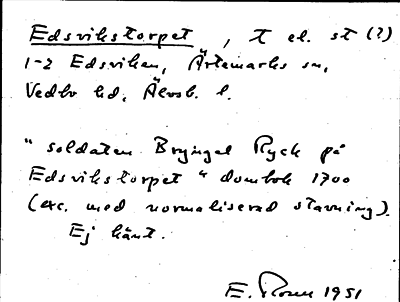 Edsvikstorpet, t el. st (?)
1-2 Edsviken, Ärtemarks sn,
Vedbo hd, Älvsb. l.
"soldaten Bryngel Ryck på
Edsvikstorpet" dombok 1700
(exc. med normaliserad stavning).
Ej känt.
E. 1951